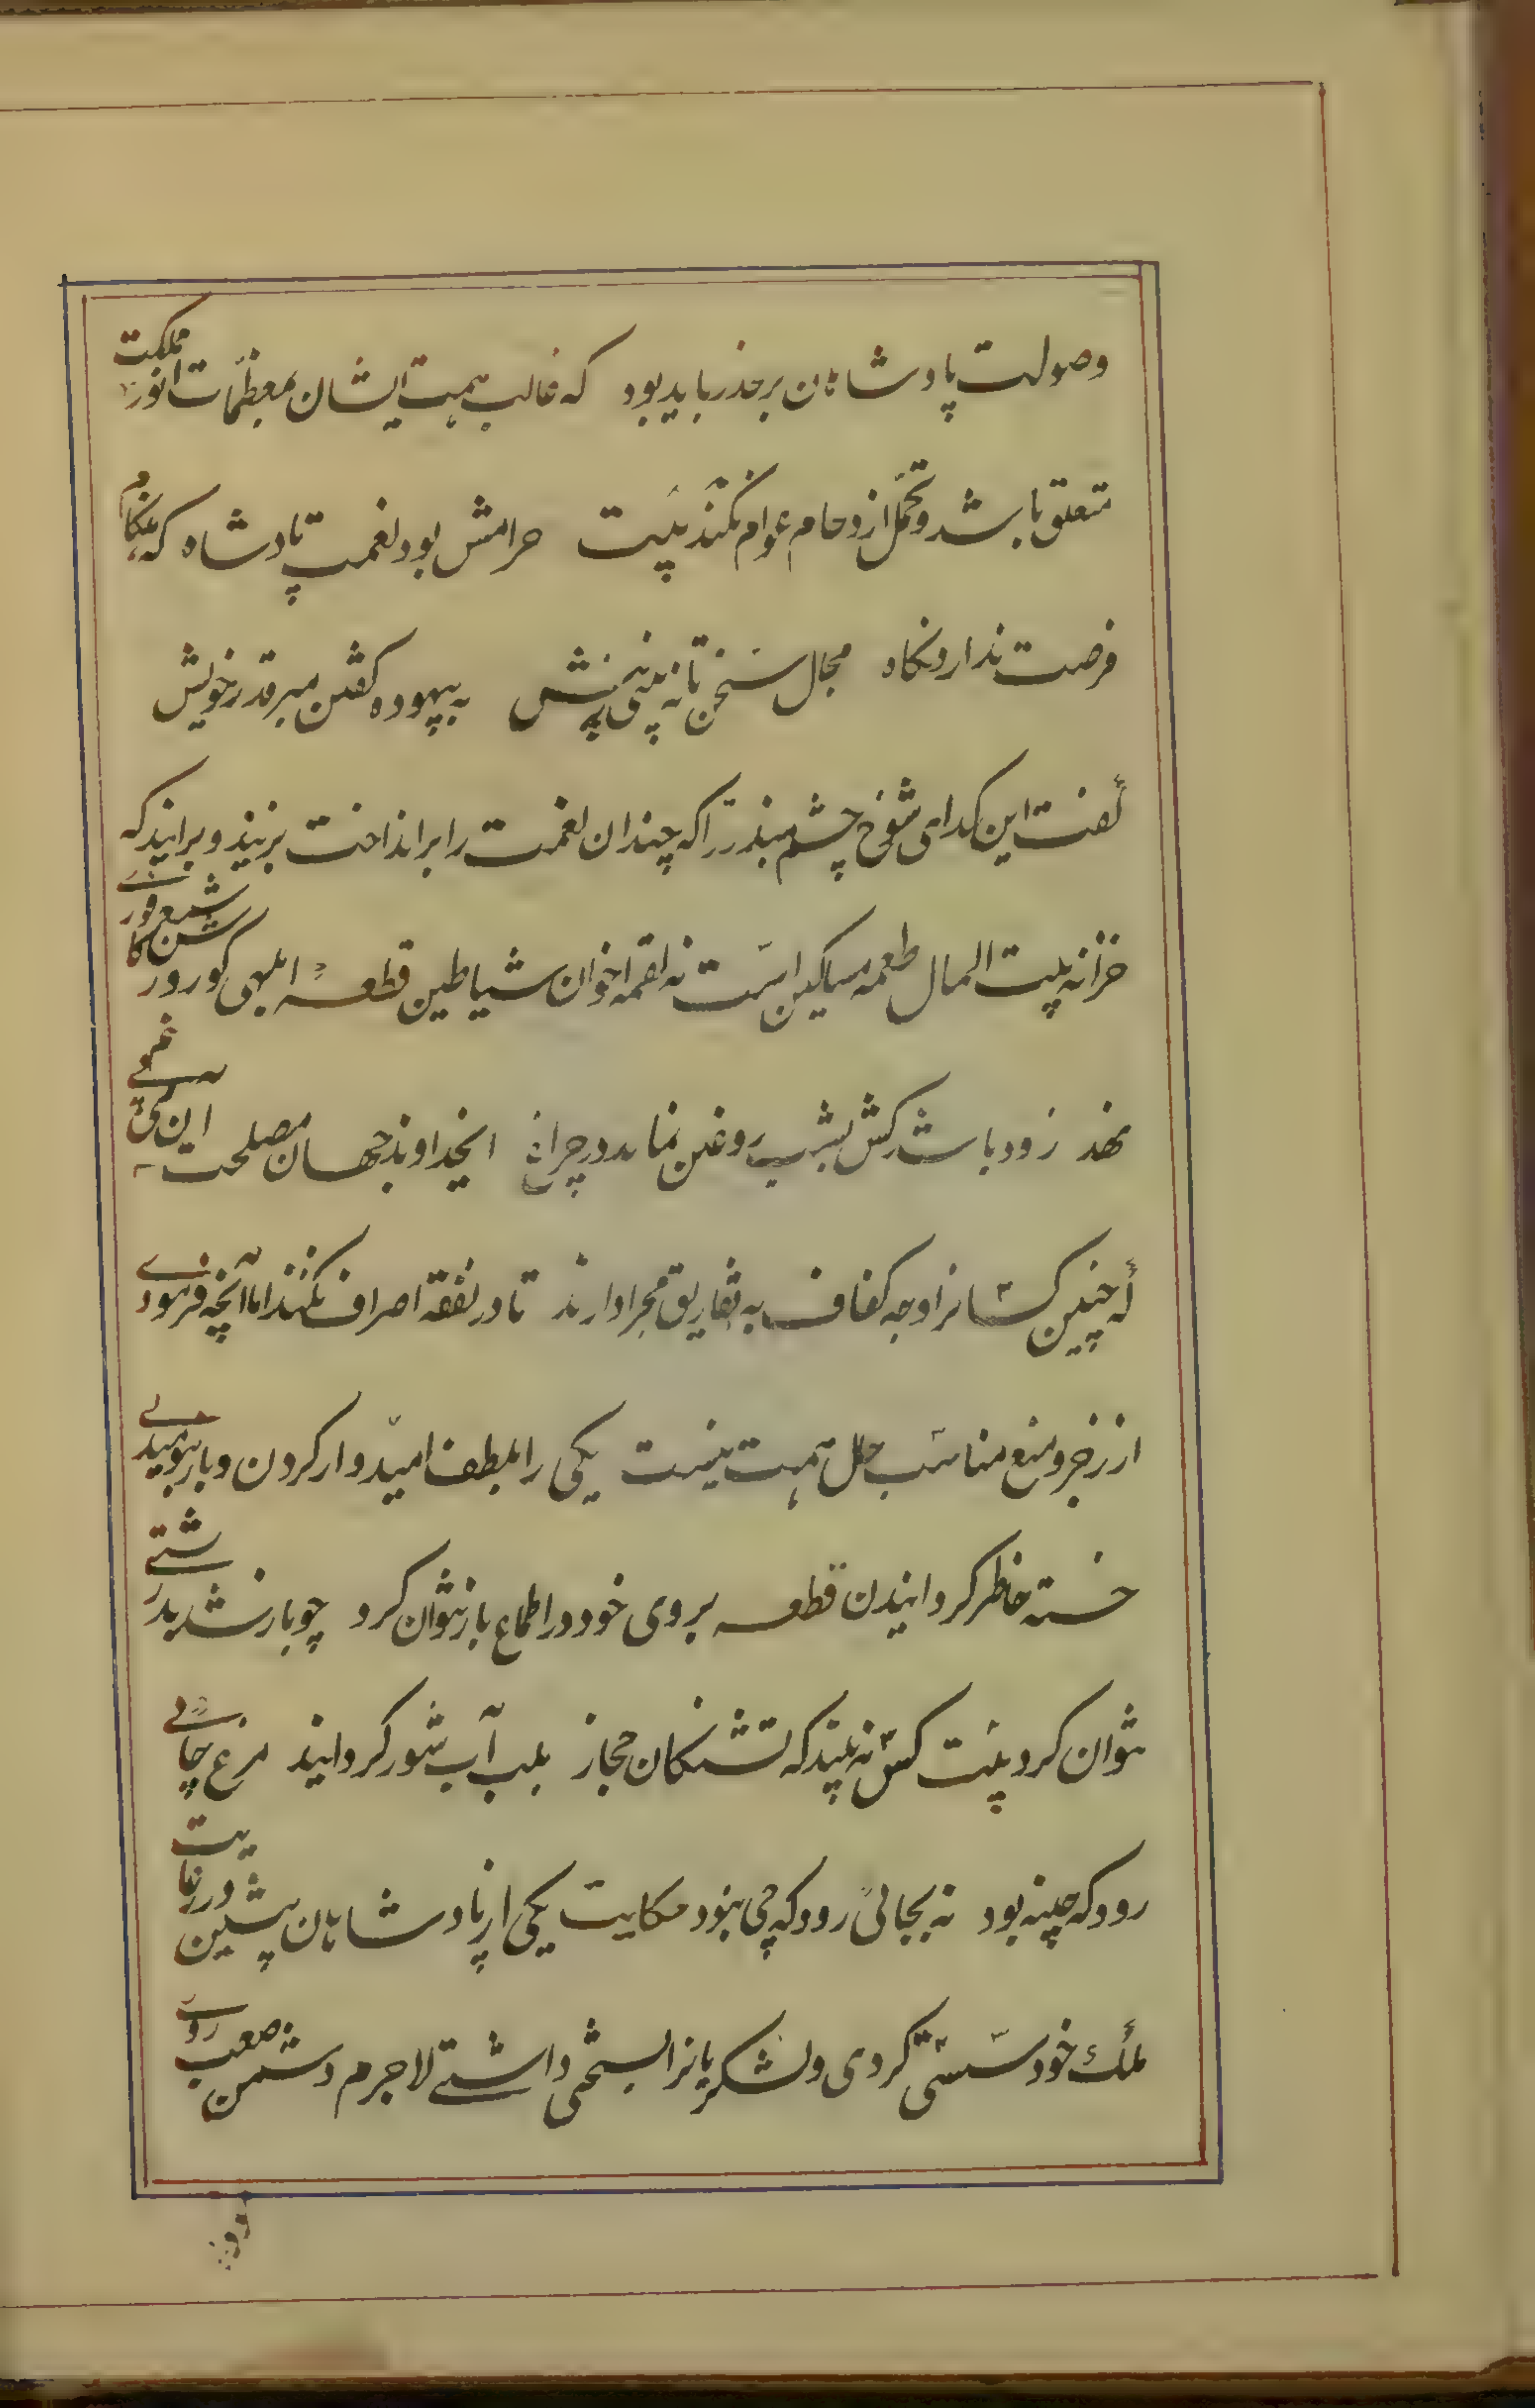 وصولت پادشاهان برحذر باید بود که غالب همت ایشان بمعظمات امور مملکت
متعلق باشد و تحمل ازدحام عوام نکند بیت حرامش بود نعمت پادشاه که هنگام
فرصت ندارد نگاه مجال سخن تا نه بینی ز پیش به بیهوده گفتن مبر قدر خویش
گفت این گدای شوخ چشم مبذر را که چندان نعمت را برانداخت بزنید و برانید که
خزانه بیت المال طعمه مساکین است نه لقمه اخوان شیاطین قطعه ابلهی کو روز روشن شمع کافوری
نهد زود باشد کش بشب روغن نماند در چراغ ایخداوند جهان مصلحت این می بینم
که چنین کسانرا وجه کفاف به تفاریق مجرا دارند تا در نفقه اصراف نکنند اما آنچه فرمودی
از زجر و منع مناسب حال همت نیست یکی را بلطف امیدوار کردن و باز بنومیدی
خسته خاطر گردانیدن قطعه بروی خود در اطماع باز نتوان کرد چو باز شد بدرشتی
نتوان کرد بیت کس نه بیند که تشنگان حجاز بلب آب شور گرد آیند مرغ جائی
رود که چینه بود نه بجائی رود که چی نبود حکایت یکی از پادشاهان پیشین در رعایت
ملک خود سستی کردی و لشکریانرا بسختی داشتی لاجرم دشمن صعب روی